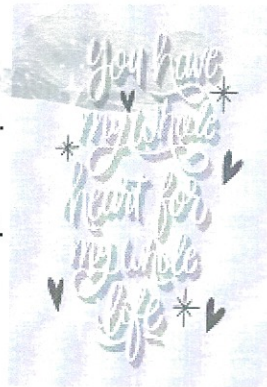 you have
my whole
heart for
my whole
life